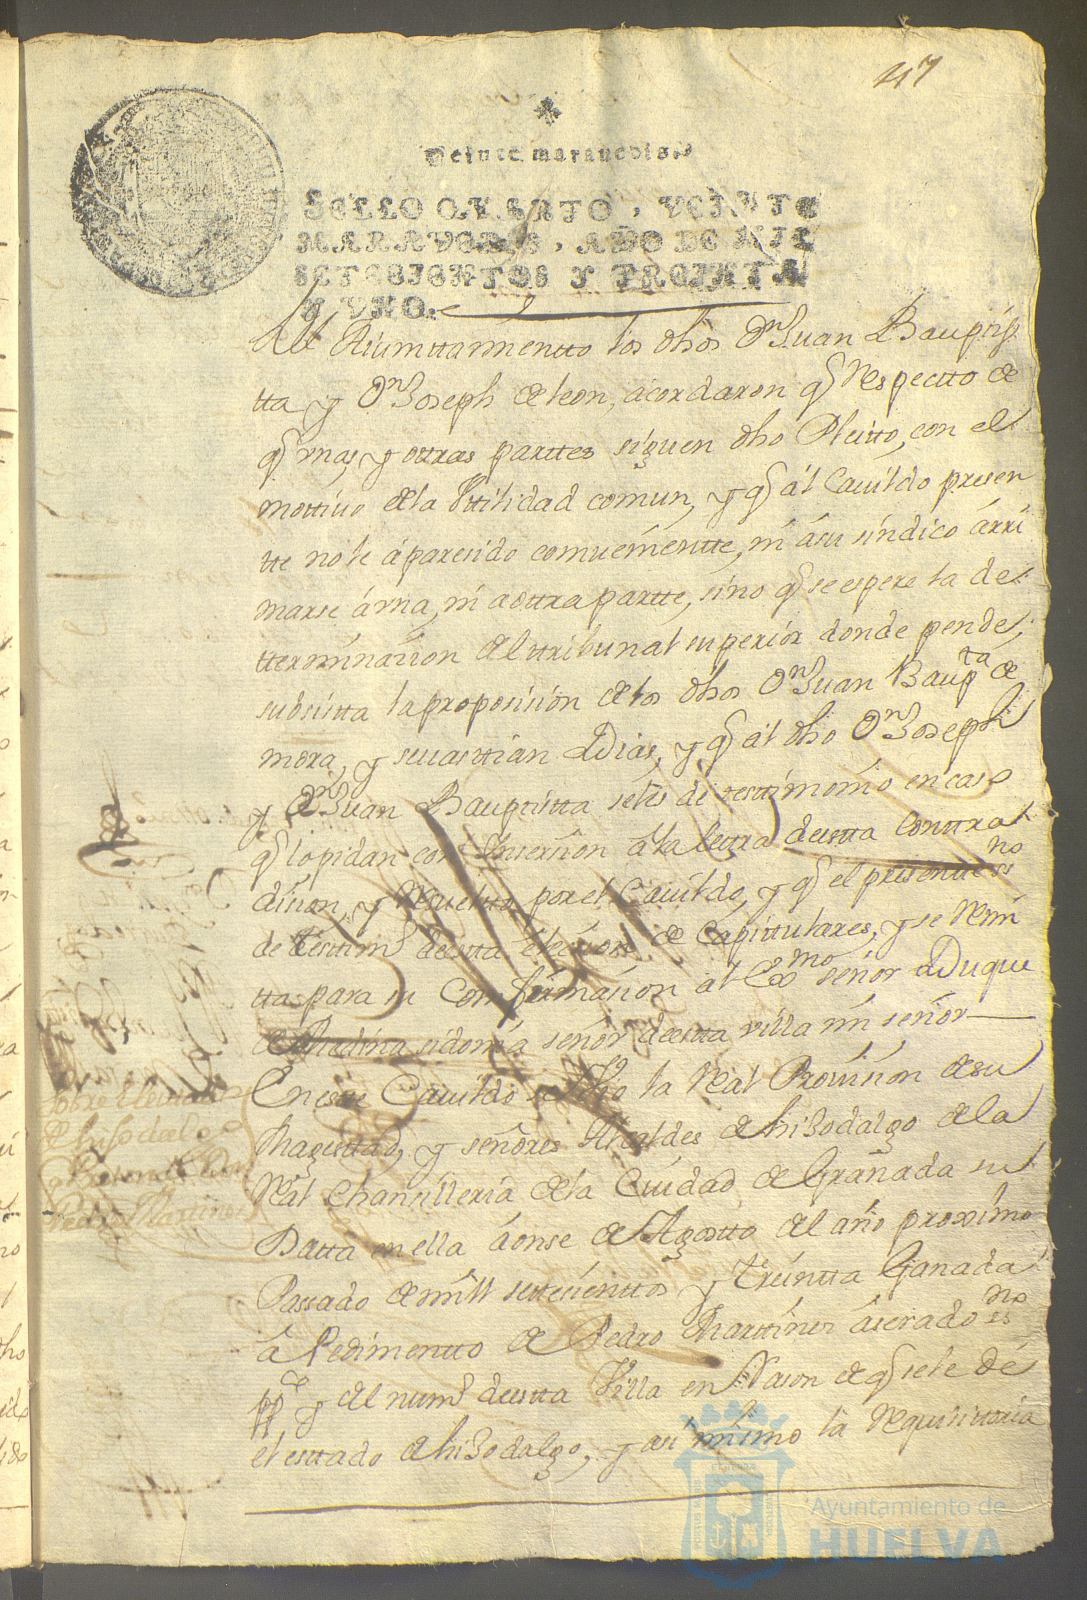 47
Veinte maravedis.
SELLO QVARTO, VEINTE
MARAVEDIS, AÑO DE MIL
SETECIENTOS Y TREINTA
Y VNO.
los dhos Dn Juan Bauptis
tta y Dn Joseph de leon, acordaron q Respectto de
q mas, y ottras parttes siguen dho Pleitto, con el
mottivo de la Vttilidad comun, y q al Cavildo presen
tte no le a paresido comveniente, ni a su sindico arri
marse a una, ni a ottra partte, sino q se espere la de
tterminasion del ttribunal superior donde pende,
subsistta la proposision de los dhos Dn Juan Baupta de
mora, y sevasttian Dias, y q al dho Dn Joseph
y Dn Juan Bauptistta se les de testtimonio en caso
q lo pidan con Insersion a la lettra de estta Conttra
dision, y Resuelto por el Cavildo, y q el presentte esno
de testtimo de estta elecsion de Capittulares, y se Remi
tta para su Confirmasion al Exmo señor Duque
de Medina sidonia señor de estta villa mi señor
En estte Cavildo se Vio la Real Provision de su
Magesttad, y señores Alcaldes de hisodalgo de la
Real Chansilleria de la Ciudad de Granada su
Datta en ella a onse de Agostto del año proximo
Passado de mill settesienttos y Treintta Ganada
a Pedimentto de Pedro Marttines aserado esno
ppco y del numo de estta Villa en Rason de q se le de
el esttado de hisodalgo, y asi mismo la Requisittoria
sobre el esttado
de hisodalgo
Pedro Marttines
Ayuntamiento de
HUELVA